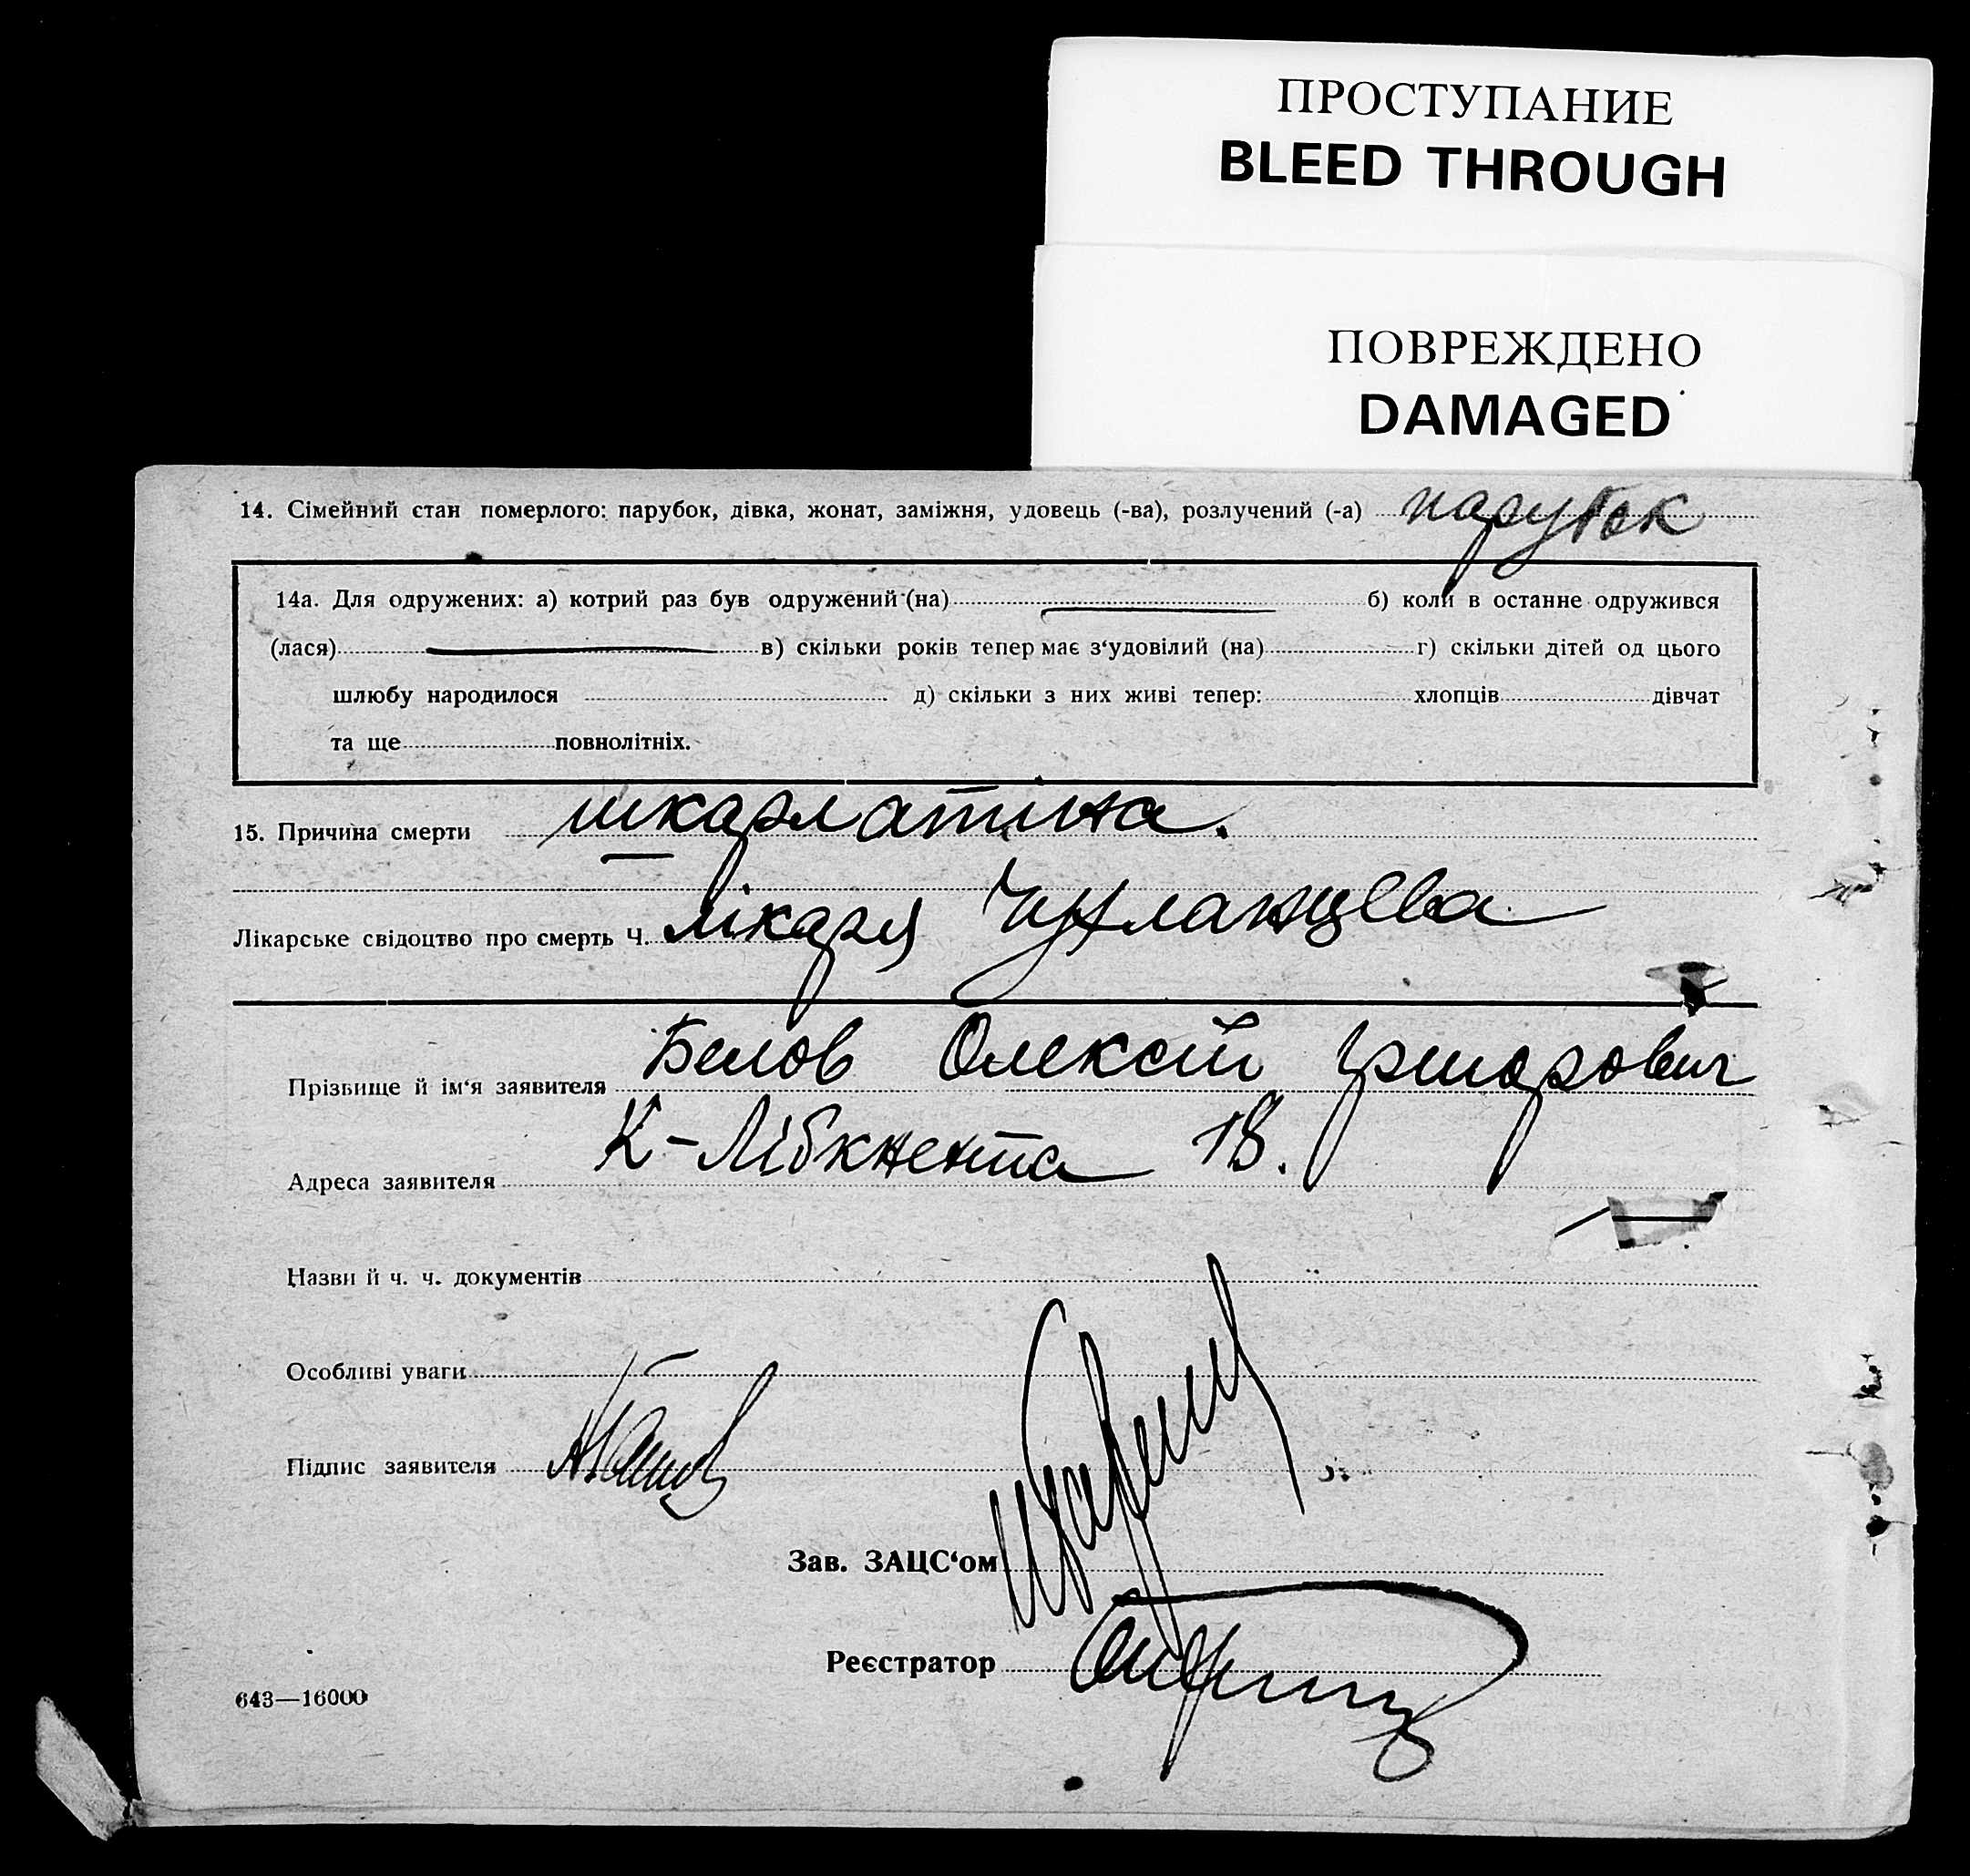 ПРОСТУПАНИЕ
BLEED THROUGH
ПОВРЕЖДЕНО
DAMAGED
14. Сімейний стан померлого: парубок, дівка, жонат, заміжня, удовець (-ва), розлучений (-а) парубок
14а. Для одружених: а) котрий раз був одружений (на) б) коли в останне одружився
(лася) в) скільки років тепер має з‘удовілий (на) г) скільки дітей од цього
шлюбу народилося д) скільки з них живі тепер: хлопців дівчат
та ще повнолітніх.
15. Причина смерти шкарлатина.
Лікарське свідоцтво про смерть Ч. лікаря
Прізвище й ім‘я заявителя Белов Олексій Григорович
Адреса заявителя К-Лібкнехта 18.
Назви й ч. ч. документів
Особливі уваги
Підпис заявителя
Зав. ЗАЦС‘ом
Реєстратор
643—16000